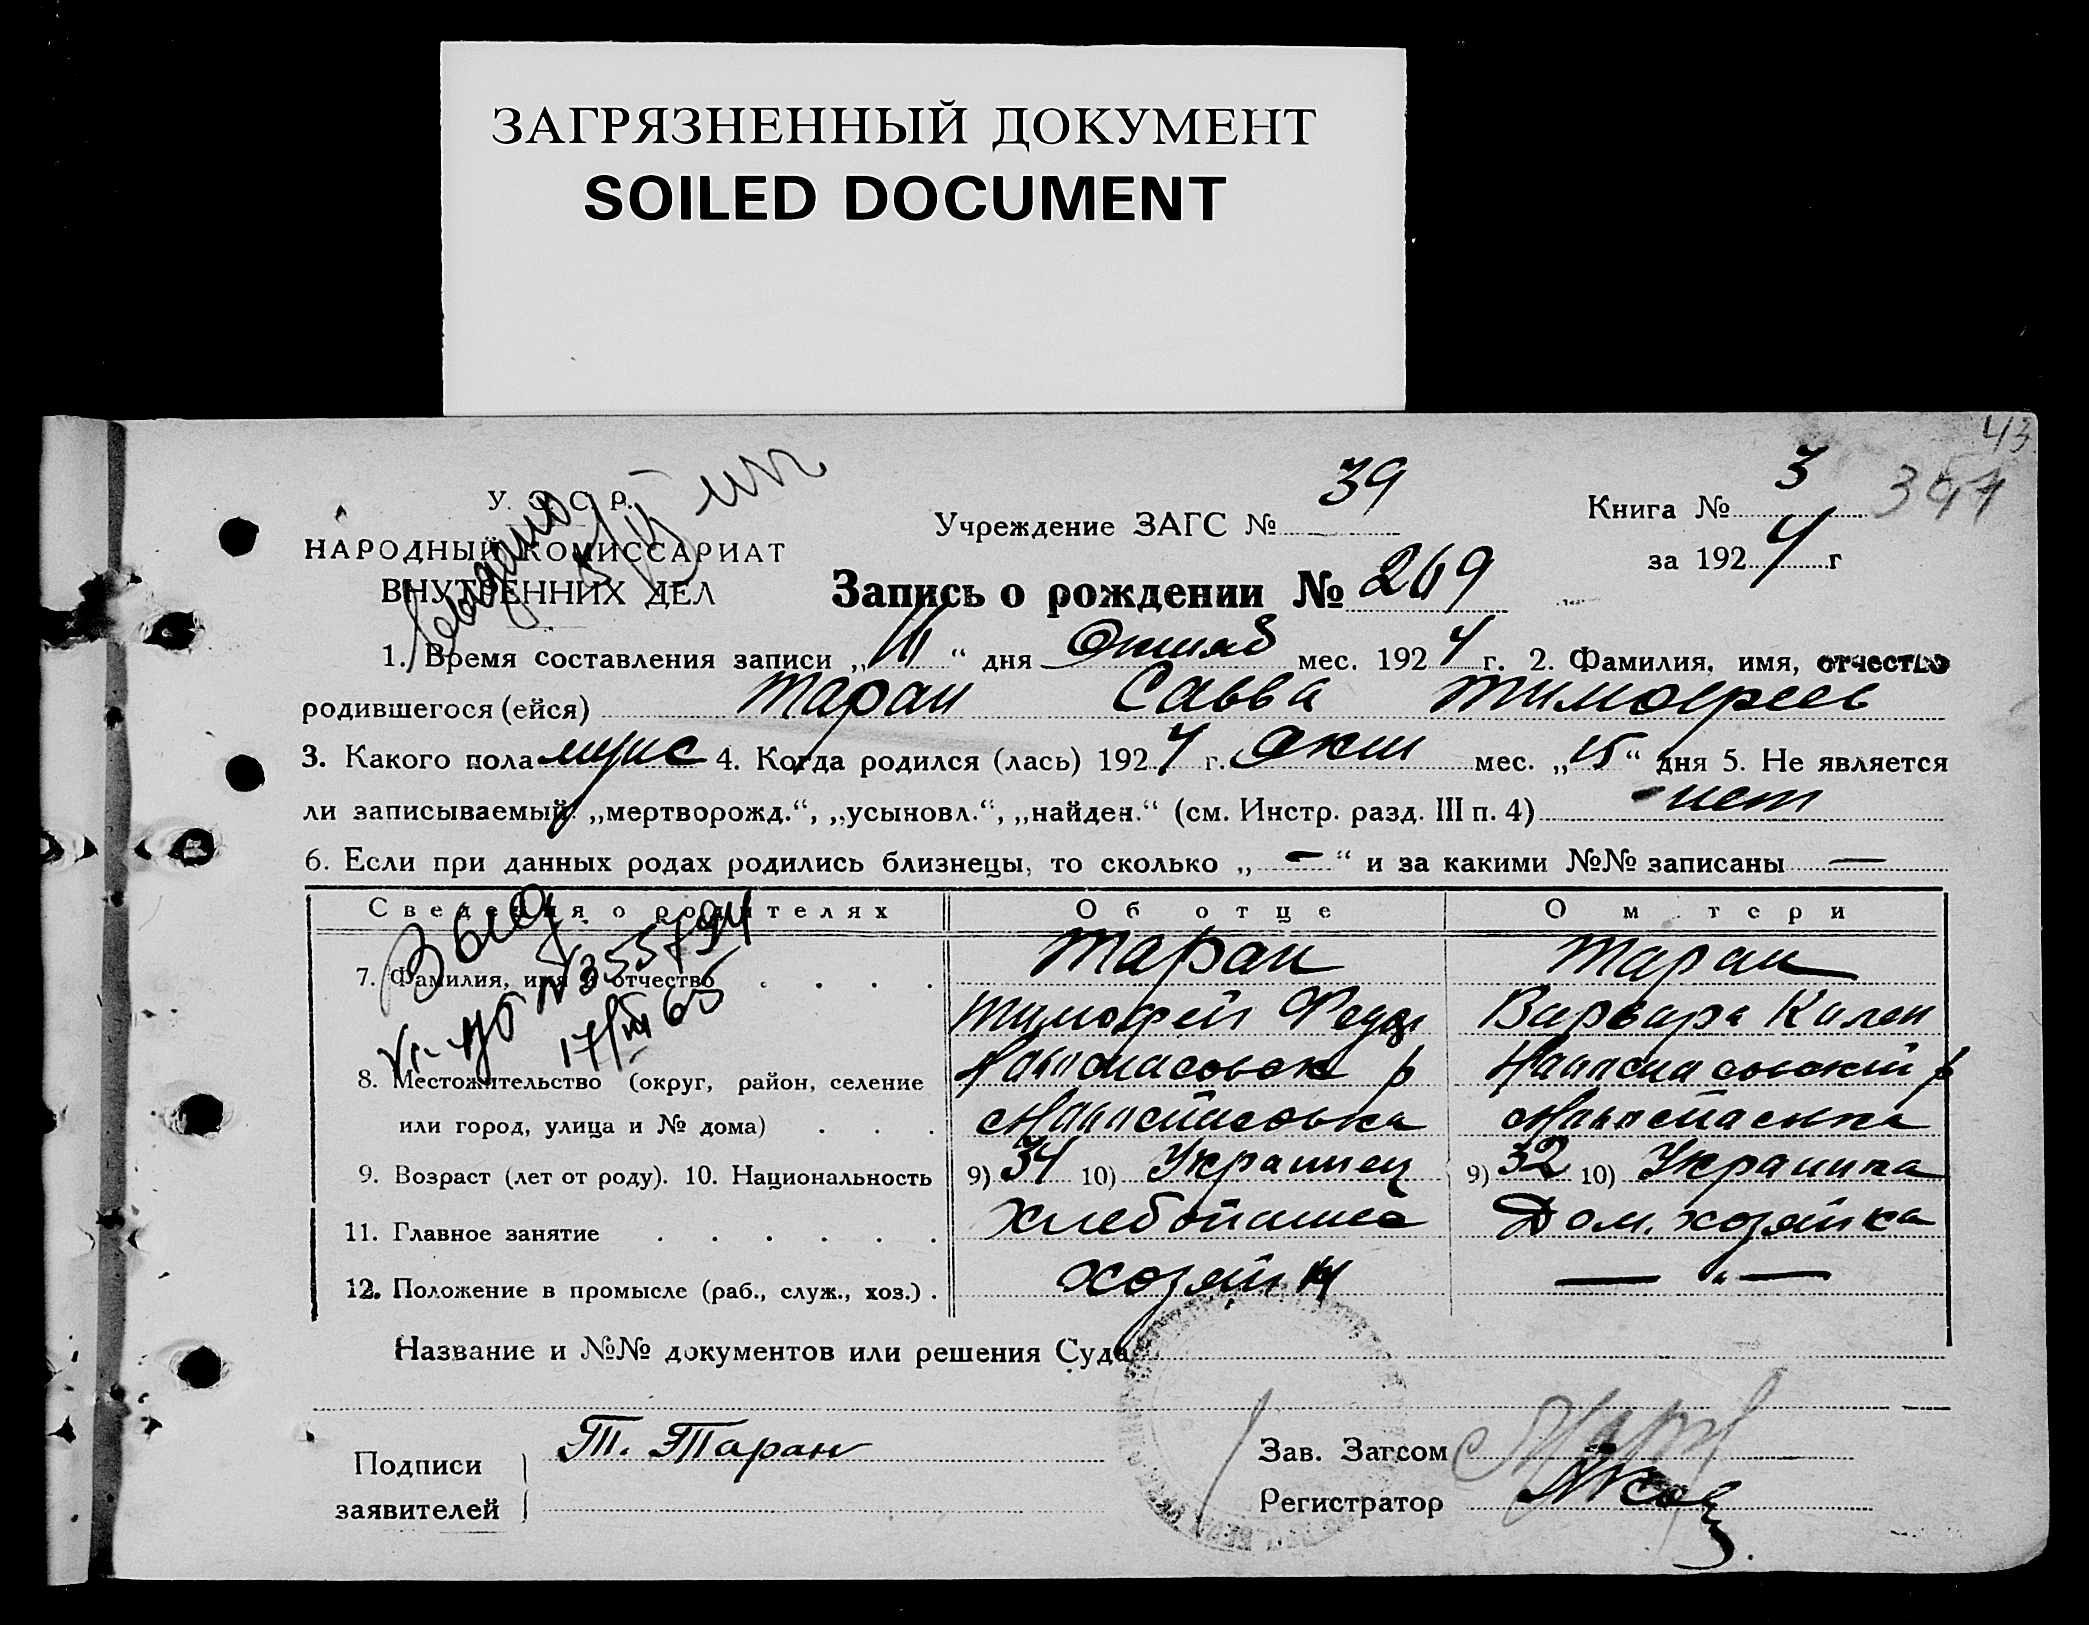 ЗАГРЯЗНЕННЫЙ ДОКУМЕНТ
SOILED DOCUMENT
43
У. С. С. Р.
НАРОДНЫЙ КОМИССАРИАТ
ВНУТРЕННИХ ДЕЛ
Учреждение ЗАГС № 39
Книга № 3
за 192 4 г
Запись о рождении № 269
1. Время составления записи „ “ дня мес. 192 4 г. 2. Фамилия, имя, отчество
родившегося (ейся) Таран Савва Тимофеев
3. Какого пола муж 4. Когда родился (лась) 192 4 г. Окт мес. „ 15 “ дня 5. Не является
ли записываемый „мертворожд.“, „усыновл.“, „найден.“ (см. Инстр. разд. III п. 4) нет
6. Если при данных родах родились близнецы, то сколько „ — “ и за какими №№ записаны —
Сведения о родителях Об отце О м тери
7. Фамилия, имя и отчество Таран Таран
Тимофей Варвара
8. Местожительство (округ, район, селение
или город, улица и № дома)
9. Возраст (лет от роду). 10. Национальность 9) 34 10) Украинец 9) 32 10) Украинка
11. Главное занятие Хлебопашец Дом. хозяйка
12. Положение в промысле (раб., служ., хоз.) хозяин — „ —
Выд
№ 355794
17/III 65
Название и №№ документов или решения Суда
Подписи Т. Таран
заявителей
Зав. Загсом
Регистратор